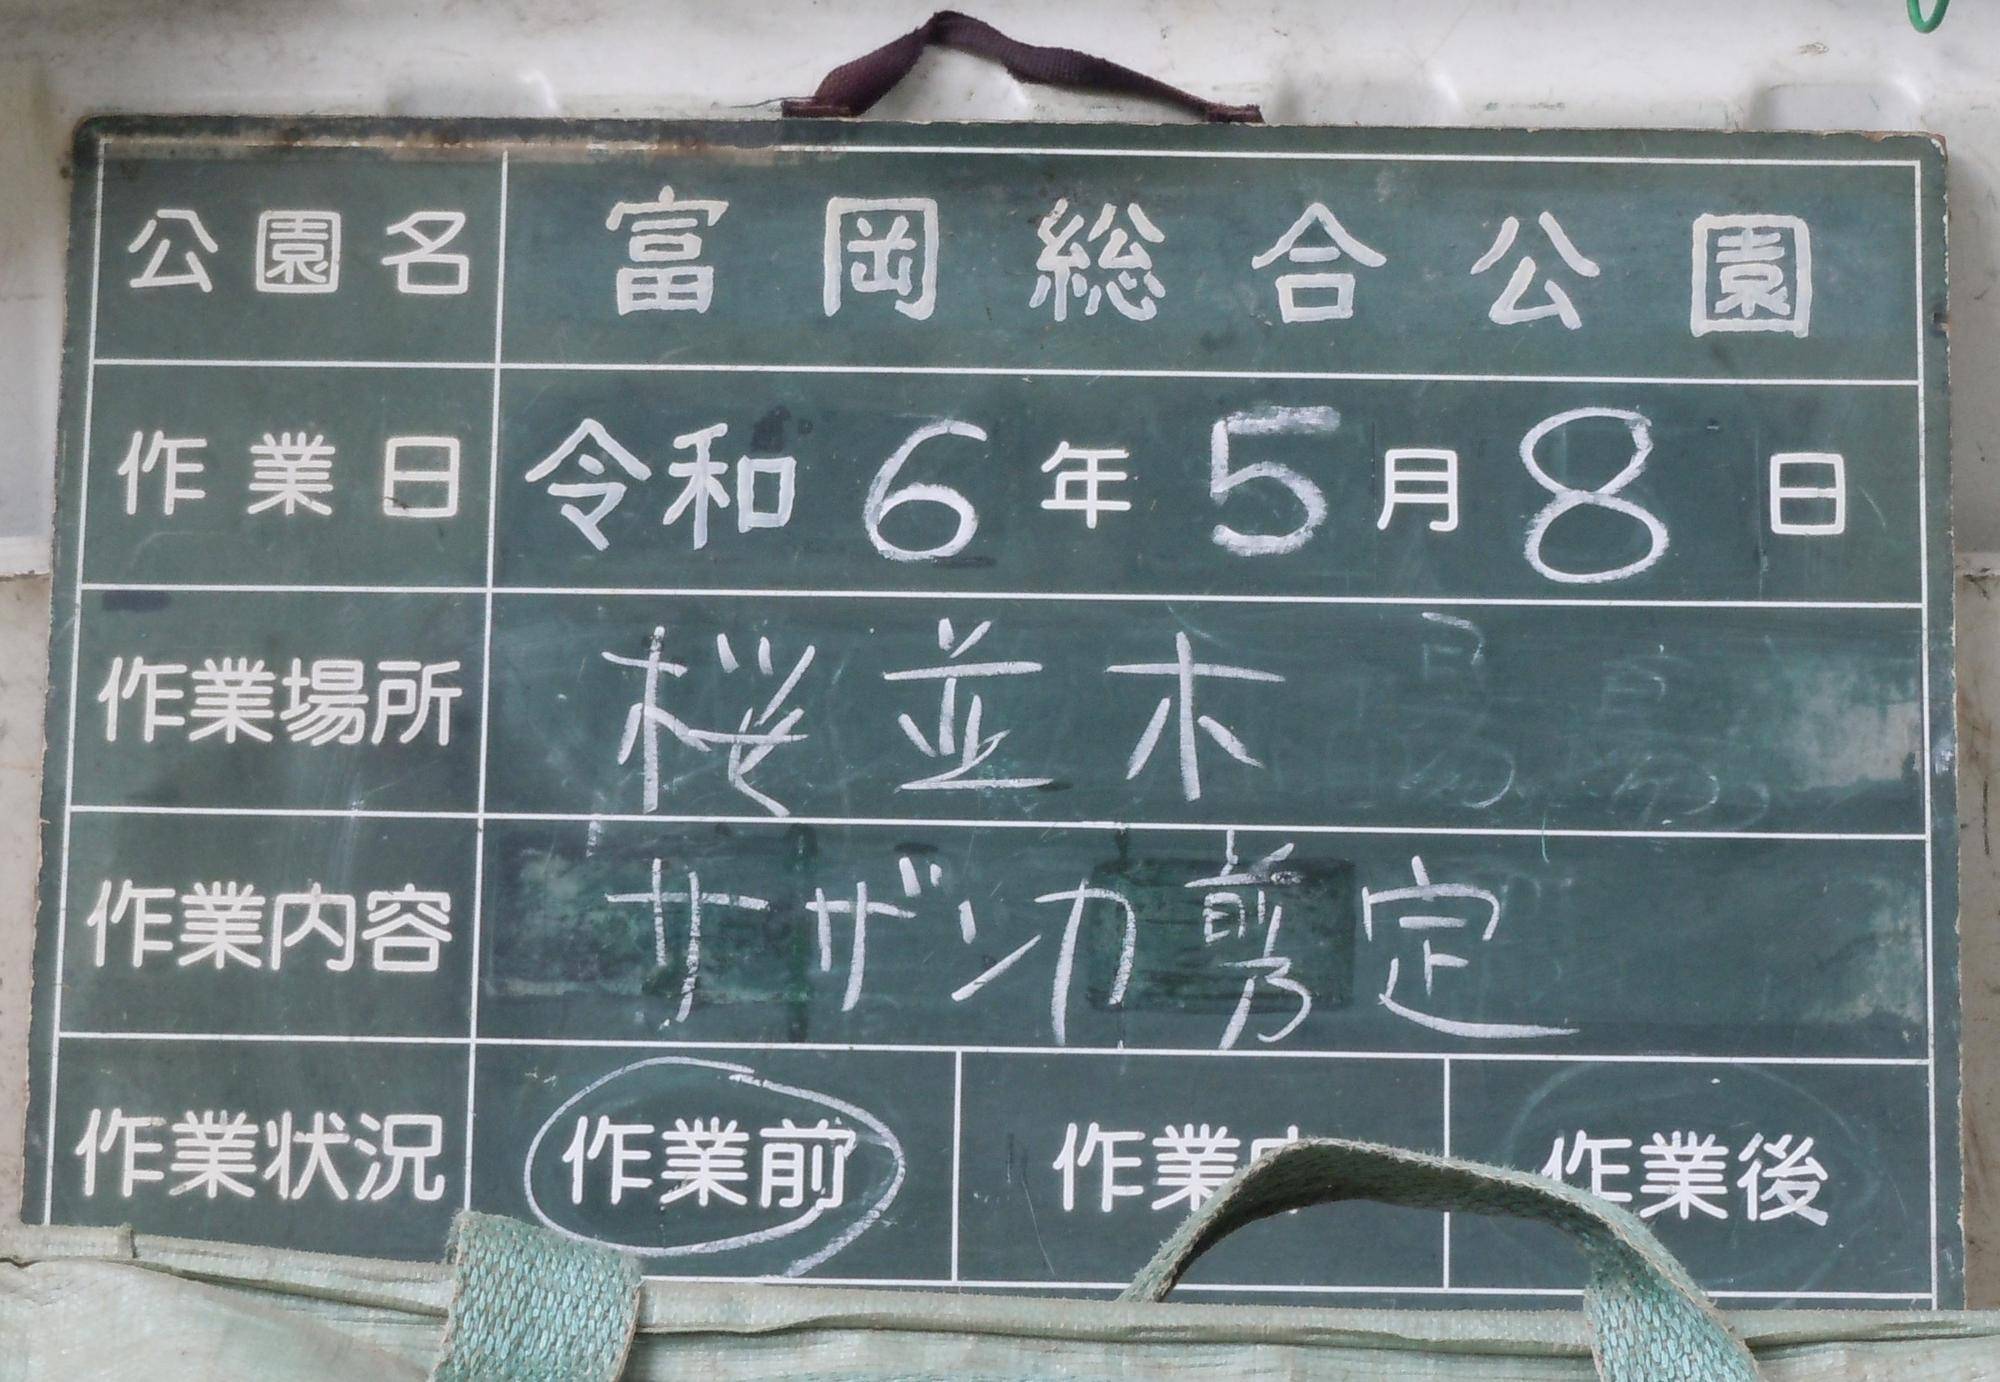 公園名 富岡総合公園
作業日 令和6年5月8日
作業場所 桜並木
作業内容 サザンカ剪定
作業状況 作業前 作業中 作業後